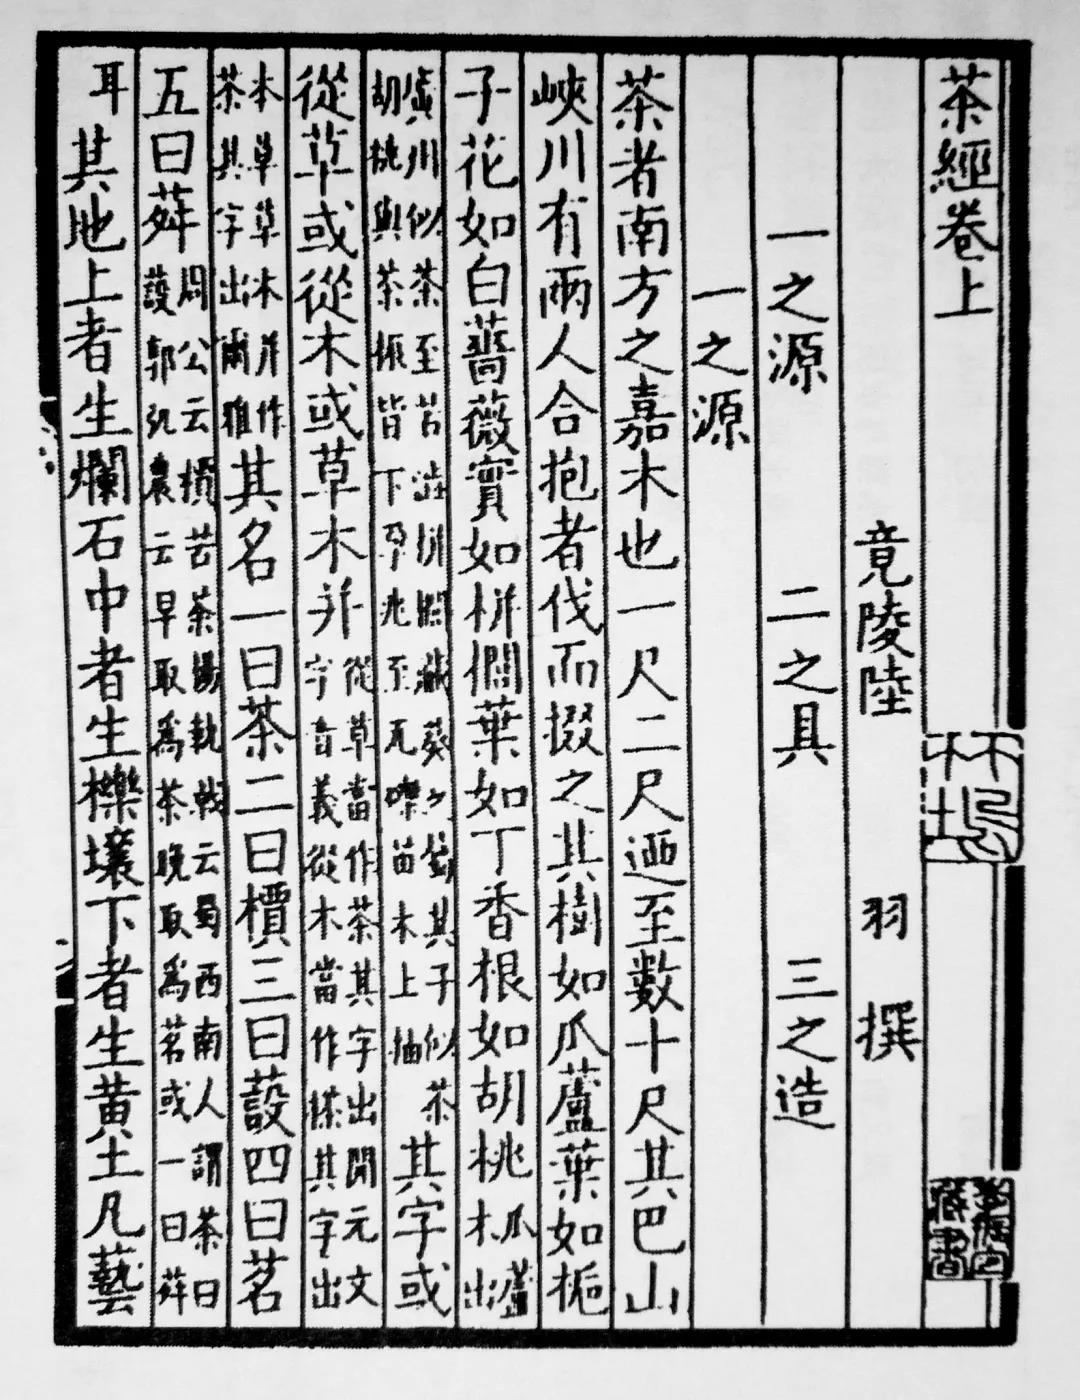 茶經卷上
竟陵陸 羽 撰
一之源 二之具 三之造
一之源
茶者南方之嘉木也一尺二尺迺至數十尺其巴山
峽川有兩人合抱者伐而掇之其樹如瓜蘆葉如梔
子花如白薔薇實如栟櫚葉如丁香根如胡桃瓜蘆木出
廣川似茶至苦澁栟櫚蒲葵之屬其子似茶胡桃與茶根皆下孕兆至瓦礫苗木上抽其字或
從草或從木或草木并從草當作茶其字出開元文字音義從木當作搽其字出
本草草木并作茶其字出爾雅其名一曰茶二曰檟三曰蔎四曰茗
五曰荈周公云檟苦茶楊執戟云蜀西南人謂茶曰蔎郭弘農云早取爲茶晚取爲茗或一曰荈
耳其地上者生爛石中者生櫟壤下者生黄土凡藝